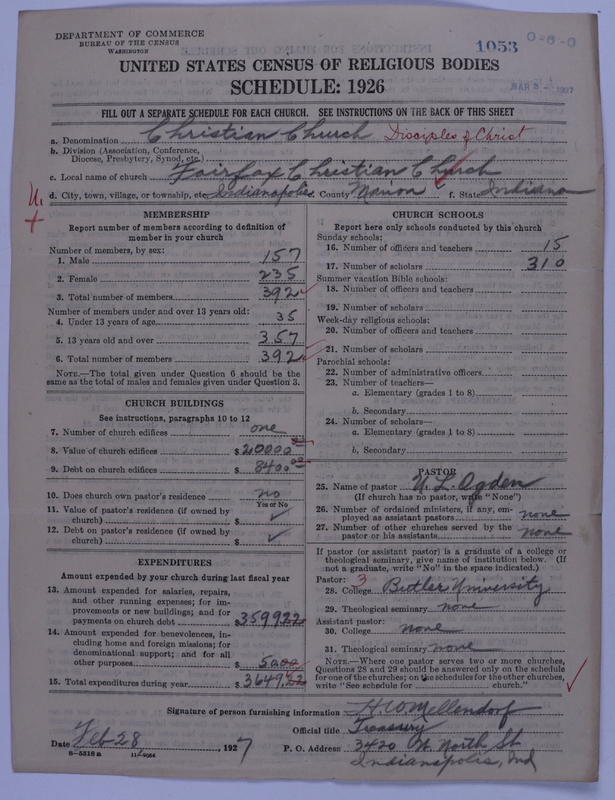 DEPARTMENT OF COMMERCE
BUREAU OF THE CENSUS
WASHINGTON
1053
0-8-0
MAR 3 - 1927
UNITED STATES CENSUS OF RELIGIOUS BODIES
SCHEDULE: 1926
FILL OUT A SEPARATE SCHEDULE FOR EACH CHURCH. SEE INSTRUCTIONS ON THE BACK OF THIS SHEET
a. Denomination Christian Church Disciples of Christ
b. Division (Association, Conference, Diocese, Presbytery, Synod, etc.)
c. Local name of church Fairfax Christian Church
d. City, town, village, or township, etc. Indianapolis County Marion f. State Indiana
MEMBERSHIP
Report number of members according to definition of
member in your church
Number of members, by sex:
1. Male 157
2. Female 235
3. Total number of members 392
Number of members under and over 13 years old:
4. Under 13 years of age 35
5. 13 years old and over 357
6. Total number of members 392
NOTE.—The total given under Question 6 should be
same as the total of males and females given under Question 3.
CHURCH BUILDINGS
See instructions, paragraphs 10 to 12
7. Number of church edifices one
8. Value of church edifices $20000
9. Debt on church edifices $8400 00
10. Does church own pastor's residence no
Yes or No
11. Value of pastor's residence (if owned by
church) $ ✓
12. Debt on pastor's residence (if owned by
church) $ ✓
EXPENDITURES
Amount expended by your church during last fiscal year
13. Amount expended for salaries, repairs,
and other running expenses; for im-
provements or new buildings; and for
payments on church debt $3599.22
14. Amount expended for benevolences, in-
cluding home and foreign missions; for
denominational support; and for all
other purposes $50.00
15. Total expenditures during year $3649.22
CHURCH SCHOOLS
Report here only schools conducted by this church
Sunday schools:
16. Number of officers and teachers 15
17. Number of scholars 310
Summer vacation Bible schools:
18. Number of officers and teachers
19. Number of scholars
Week-day religious schools:
20. Number of officers and teachers
21. Number of scholars
Parochial schools:
22. Number of administrative officers
23. Number of teachers—
a. Elementary (grades 1 to 8)
b. Secondary
24. Number of scholars—
a. Elementary (grades 1 to 8)
b. Secondary
PASTOR
25. Name of pastor W. L. Ogden
(If church has no pastor, write "None")
26. Number of ordained ministers, if any, em-
ployed as assistant pastors none
27. Number of other churches served by the
pastor or his assistants none
If pastor (or assistant pastor) is a graduate of a college or
theological seminary, give name of institution below. (If
not a graduate, write "No" in the space indicated.)
Pastor: 3
28. College Butler University
29. Theological seminary none
Assistant pastor:
30. College none
31. Theological seminary none
NOTE.—Where one pastor serves two or more churches,
Questions 28 and 29 should be answered only on the schedule
for one of the churches; on the schedules for the other churches,
write "See schedule for church."
Signature of person furnishing information H W Mellendorf
Official title Treasury
Date Feb 28, 1927 P. O. Address 3420 W. North St
Indianapolis, Ind
8-5518 a